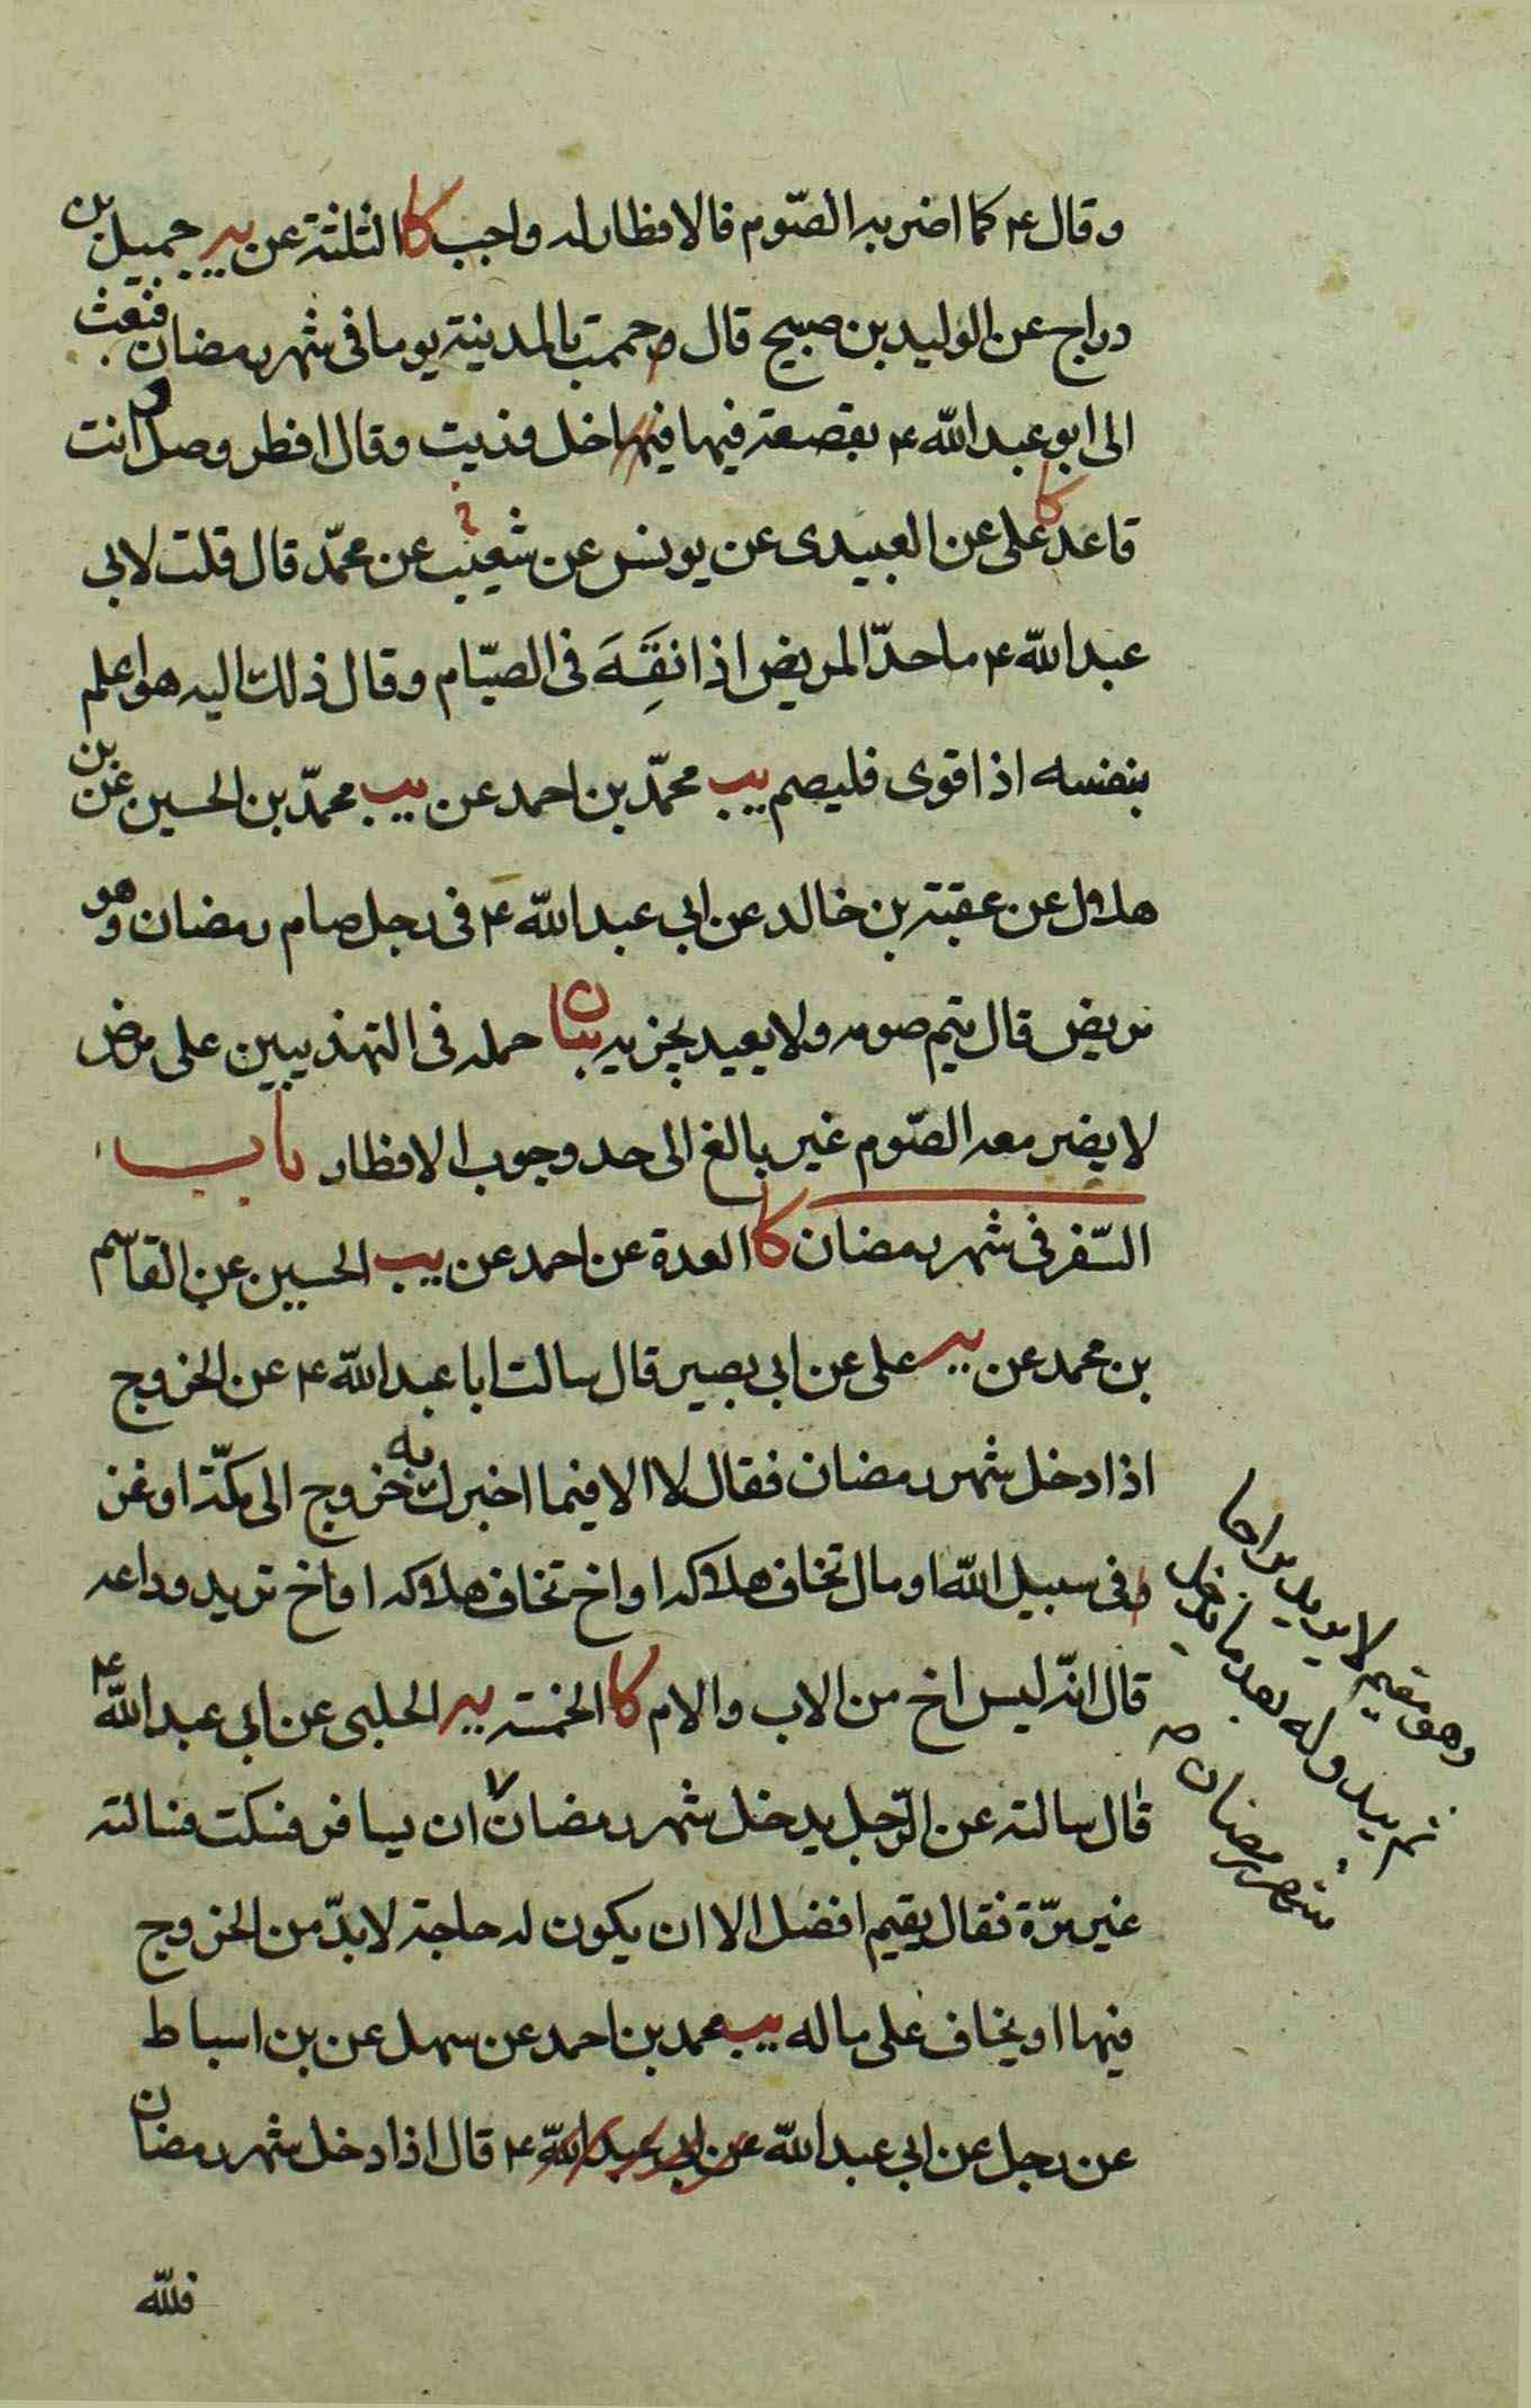 وقال ع كما اضر به الصّوم فالافطار له واجب كا الثلثة عن يه جميل بن
دراج عن الوليد بن صبيح قال حممت بالمدينة يوما فى شهر رمضان فبعث
الى ابو عبد الله ع بقصعة فيها فيها خل وزيت وقال افطر وصل وانت
قاعد كا على عن العبيدى عن يونس عن شعيب عن محمّد قال قلت لابى
عبد الله ع ما حدّ المريض اذا نَقِهَ فى الصيّام وقال ذلك اليه هو اعلم
بنفسه اذا قوى فليصم يب محمّد بن احمد عن يب محمّد بن الحسين عن بن
هلال عن عقبة بن خالد عن ابى عبد الله ع فى رجل صام رمضان وهو
مريض قال يتم صومه ولا يعيد يجزيه بيان حمله فى التهذيبين على مرض
لا يضر معه الصّوم غير بالغ الى حد وجوب الافطار باب
السّفر فى شهر رمضان كا العدة عن احمد عن يب الحسين عن القاسم
بن محمد عن يه على عن ابى بصير قال سالت ابا عبد الله ع عن الخروج
اذا دخل شهر رمضان فقال لا الا فيما اخبرك به خروج الى مكّة او غز
و فى سبيل الله او مال تخاف هلاكه او اخ تخاف هلاكه او اخ تريد وداعه
قال انّه ليس اخ من الاب والام كا الخمسة يه الحلبى عن ابى عبد الله ع
قال سالته عن الرّجل يدخل شهر رمضان ان يسافر فسكت فسالته
غير مرّة فقال يقيم افضل الا ان يكون له حاجة لا بدّ من الخروج
فيها او يخاف على ماله يب محمد بن احمد عن سهل عن بن اسباط
عن رجل عن ابى عبد الله عن ابى عبد الله ع قال اذا دخل شهر رمضان
فلله
وهو مقيم لا يريد براحا
ثم يبدو له بعد ما يدخل
شهر رمضان صح